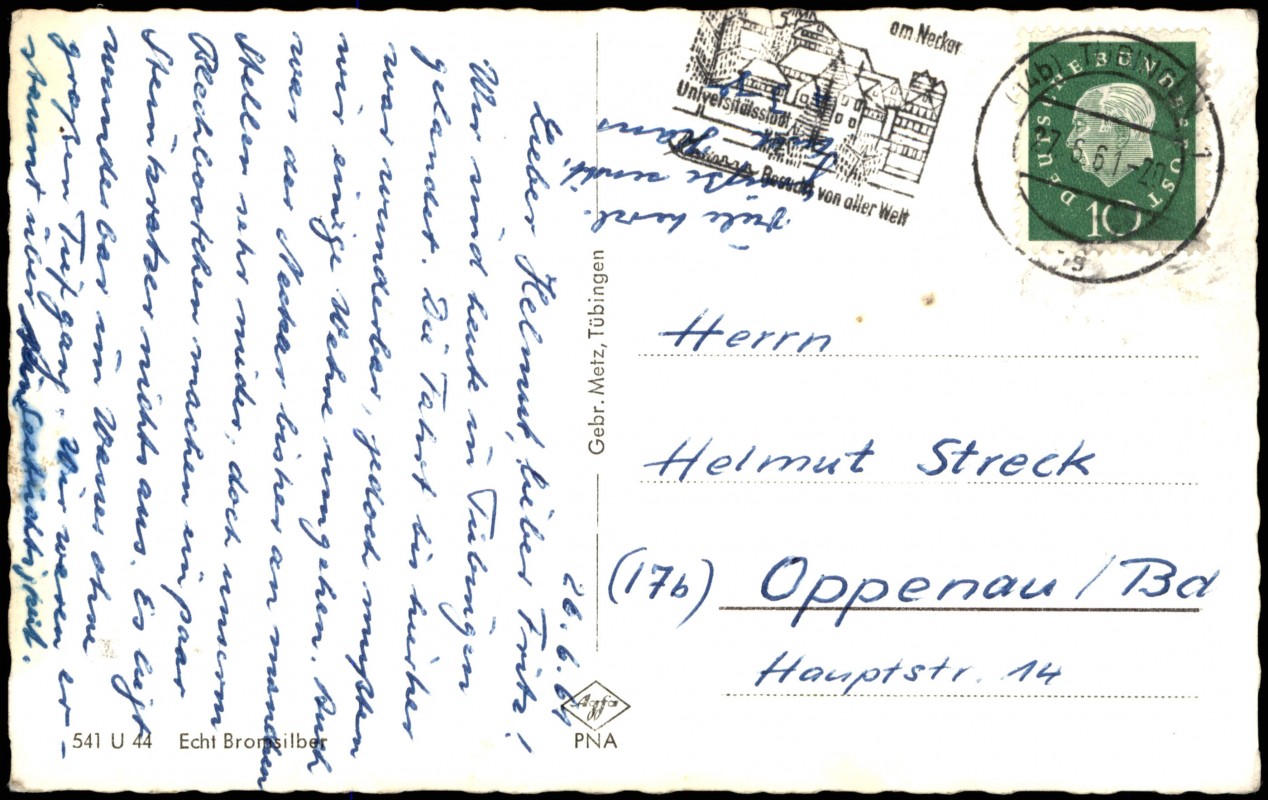 26.6.61
Lieber Helmut, lieber Fritz!
Wir sind heute in Tübingen
gelandet. Die Fahrt bis hierher
war wunderbar, jedoch mußten
wir einige Wehre umgehen. Auch
war der Neckar bisher an manchen
Stellen sehr nieder, doch unserem
Blechbootchen machen ein paar
Steinkratzer nichts aus. Es liegt
wunderbar im Wasser ohne
großen Tiefgang. Wir waren er-
staunt über Seetüchtigkeit.
Viele herzl.
Grüße
Hans
am Neckar
Universitätsstadt
Besuch von aller Welt
TÜBINGEN 1
27.6.61-20
g
DEUTSCHE BUNDESPOST
10
Herrn
Helmut Streck
(17b) Oppenau/Bd
Hauptstr. 14
Gebr. Metz, Tübingen
541 U 44 Echt Bromsilber
Agfa
PNA